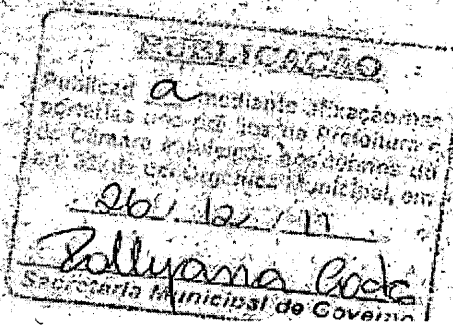 PUBLICAÇÃO
Publicad a mediante afixação nas
portarias da Prefeitura e
da Câmara nos termos do
art. da Lei Orgânica Municipal, em
26 / 12 / 11
Pollyana
Secretaria Municipal de Governo